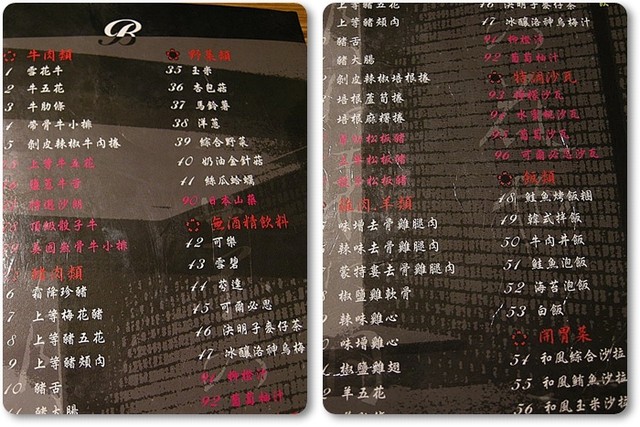 B
牛肉類
1 雪花牛
2 牛五花
3 牛肋條
帶骨牛小排
5 剝皮辣椒牛肉捲
上等牛五花
頂級骰子牛
美國無骨牛小排
豬肉類
6 霜降珍豬
7 上等梅花豬
8 上等豬五花
9 上等豬頰肉
10 豬舌
豬大腸
野菜類
35 玉米
36 杏包菇
37 馬鈴薯
38 洋蔥
39 綜合野菜
40 奶油金針菇
41 絲瓜蛤蠣
90 日本山藥
無酒精飲料
42 可樂
43 雪碧
44 芬達
45 可爾必思
46 決明子麥仔茶
47 冰釀洛神烏梅
91 柳橙汁
92 葡萄柚汁
上等豬五花
上等豬頰肉
豬舌
豬大腸
剝皮辣椒培根捲
培根蘆筍捲
培根麻糬捲
松板豬
松板豬
松板豬
雞肉 羊類
味增去骨雞腿肉
辣味去骨雞腿肉
蒙特婁去骨雞腿肉
椒鹽雞軟骨
辣味雞心
味增雞心
椒鹽雞翅
羊五花
46 決明子麥仔茶
47 冰釀洛神烏梅汁
91 柳橙汁
92 葡萄柚汁
特調沙瓦
93 柳橙沙瓦
94 水蜜桃沙瓦
95 葡萄沙瓦
96 可爾必思沙瓦
飯類
48 鮭魚烤飯糰
49 韓式拌飯
50 牛肉丼飯
51 鮭魚泡飯
52 海苔泡飯
53 白飯
開胃菜
54 和風綜合沙拉
55 和風鮪魚沙拉
56 和風玉米沙拉